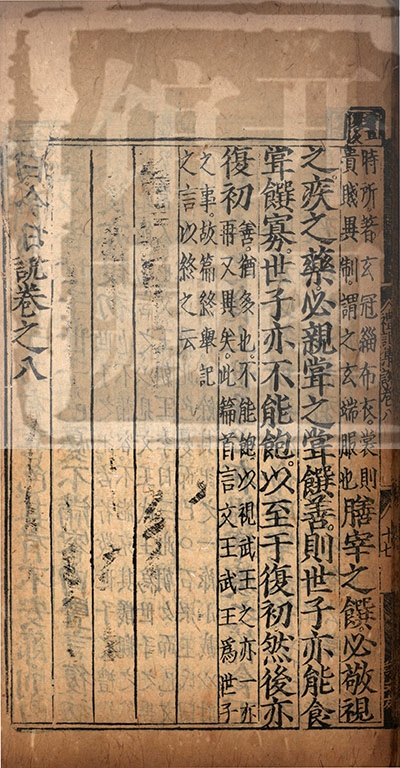 時所著玄冠緇布衣。裳則
貴賤異制。謂之玄端服也
膳宰之饌。必敬視
之疾之藥。必親嘗之。嘗饌善。則世子亦能食
嘗饌寡。世子亦不能飽。以至于復初。然後亦
復初
善。猶多也。不能飽。以視武王之亦一亦
再又異矣。此篇首言文王武王爲世子
之事。故篇終舉記
之言以終之云
說卷之八
十七